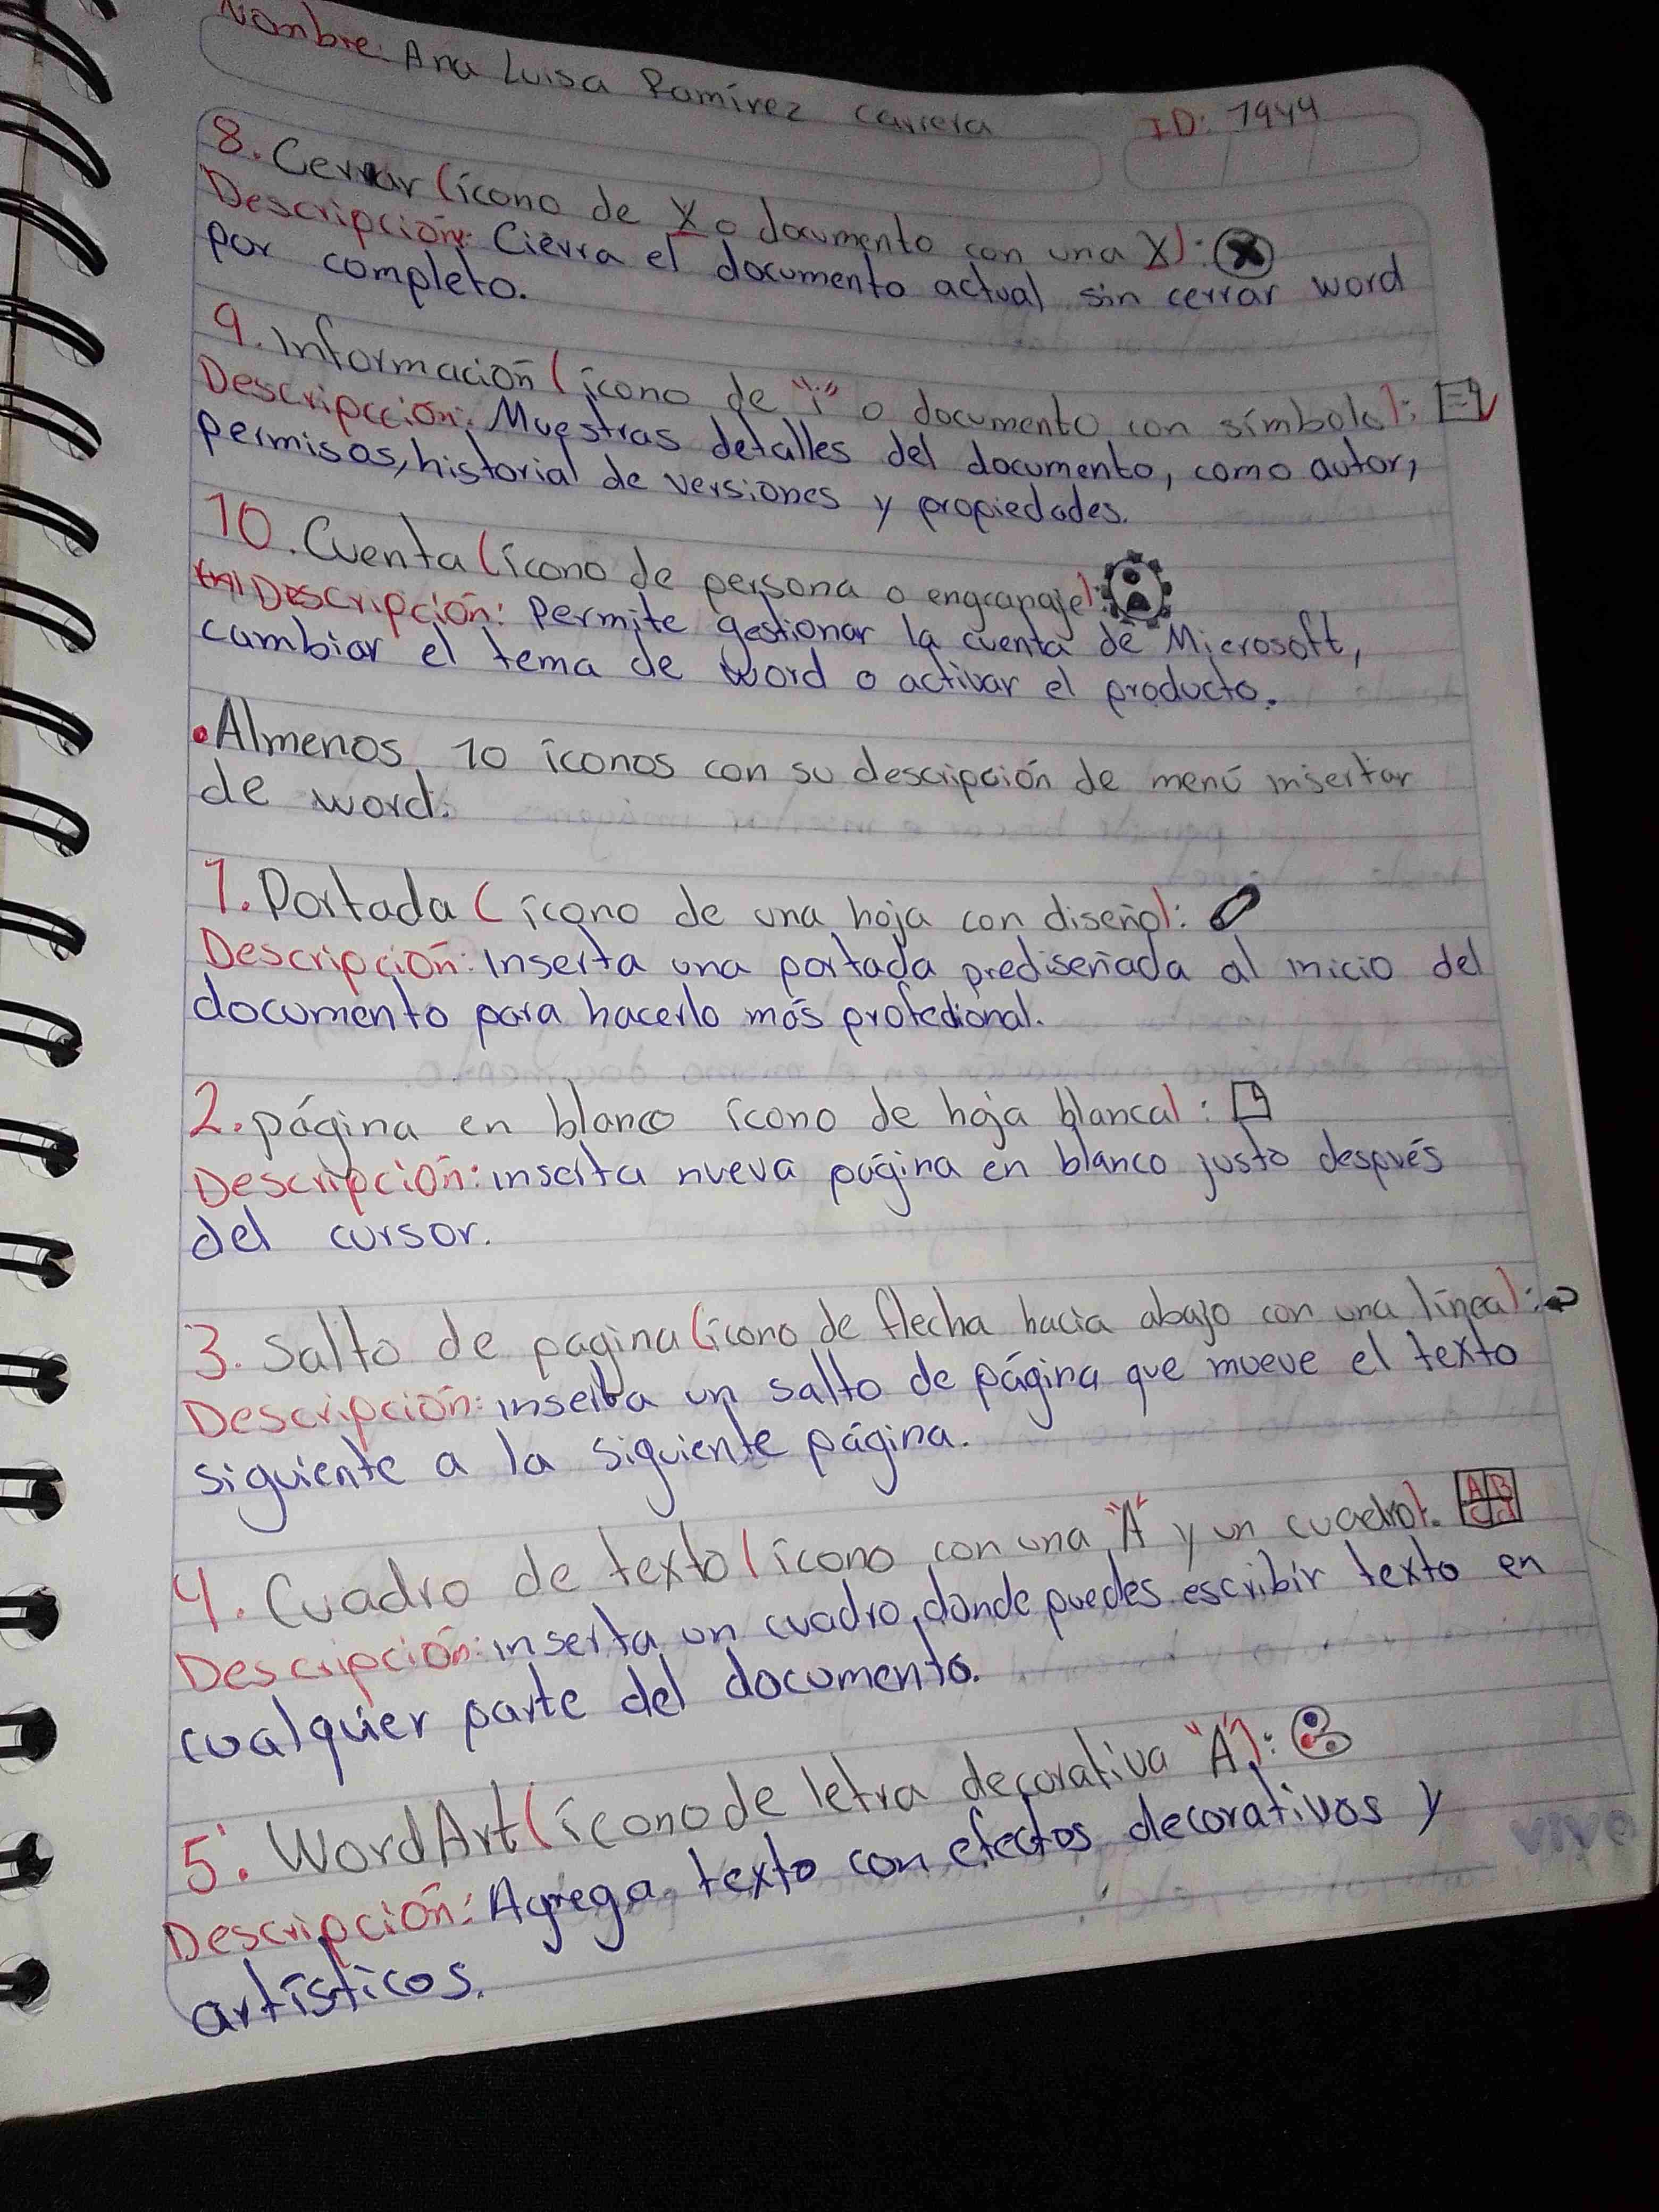 Nombre: Ana Luisa Ramírez Carrera ID: 1944
8. Cerrar (ícono de X o documento con una X):
Descripción: Cierra el documento actual sin cerrar word
por completo.
9. Información (ícono de "i" o documento con símbolo):
Descripcción: Muestras detalles del documento, como autor,
permisos, historial de versiones y propiedades.
10. Cuenta (ícono de persona o engranaje):
Descripción: Permite gestionar la cuenta de Microsoft,
cambiar el tema de word o activar el producto.
• Almenos 10 íconos con su descripción de menú insertar
de word.
1. Portada (ícono de una hoja con diseño):
Descripción: Inserta una portada prediseñada al inicio del
documento para hacerlo más profedional.
2. página en blanco ícono de hoja blanca):
Descripción: inserta nueva página en blanco justo después
del cursor.
3. Salto de pagina (ícono de flecha hacia abajo con una línea):
Descripción: inserta un salto de página que mueve el texto
siguiente a la siguiente página.
4. Cuadro de texto (ícono con una "A" y un cuadro).
A B
C d
Descripción: inserta un cuadro, donde puedes escribir texto en
cualquier parte del documento.
5. WordArt (ícono de letra decorativa "A"):
Descripción: Agrega texto con efectos decorativos y
artísticos.
vivo